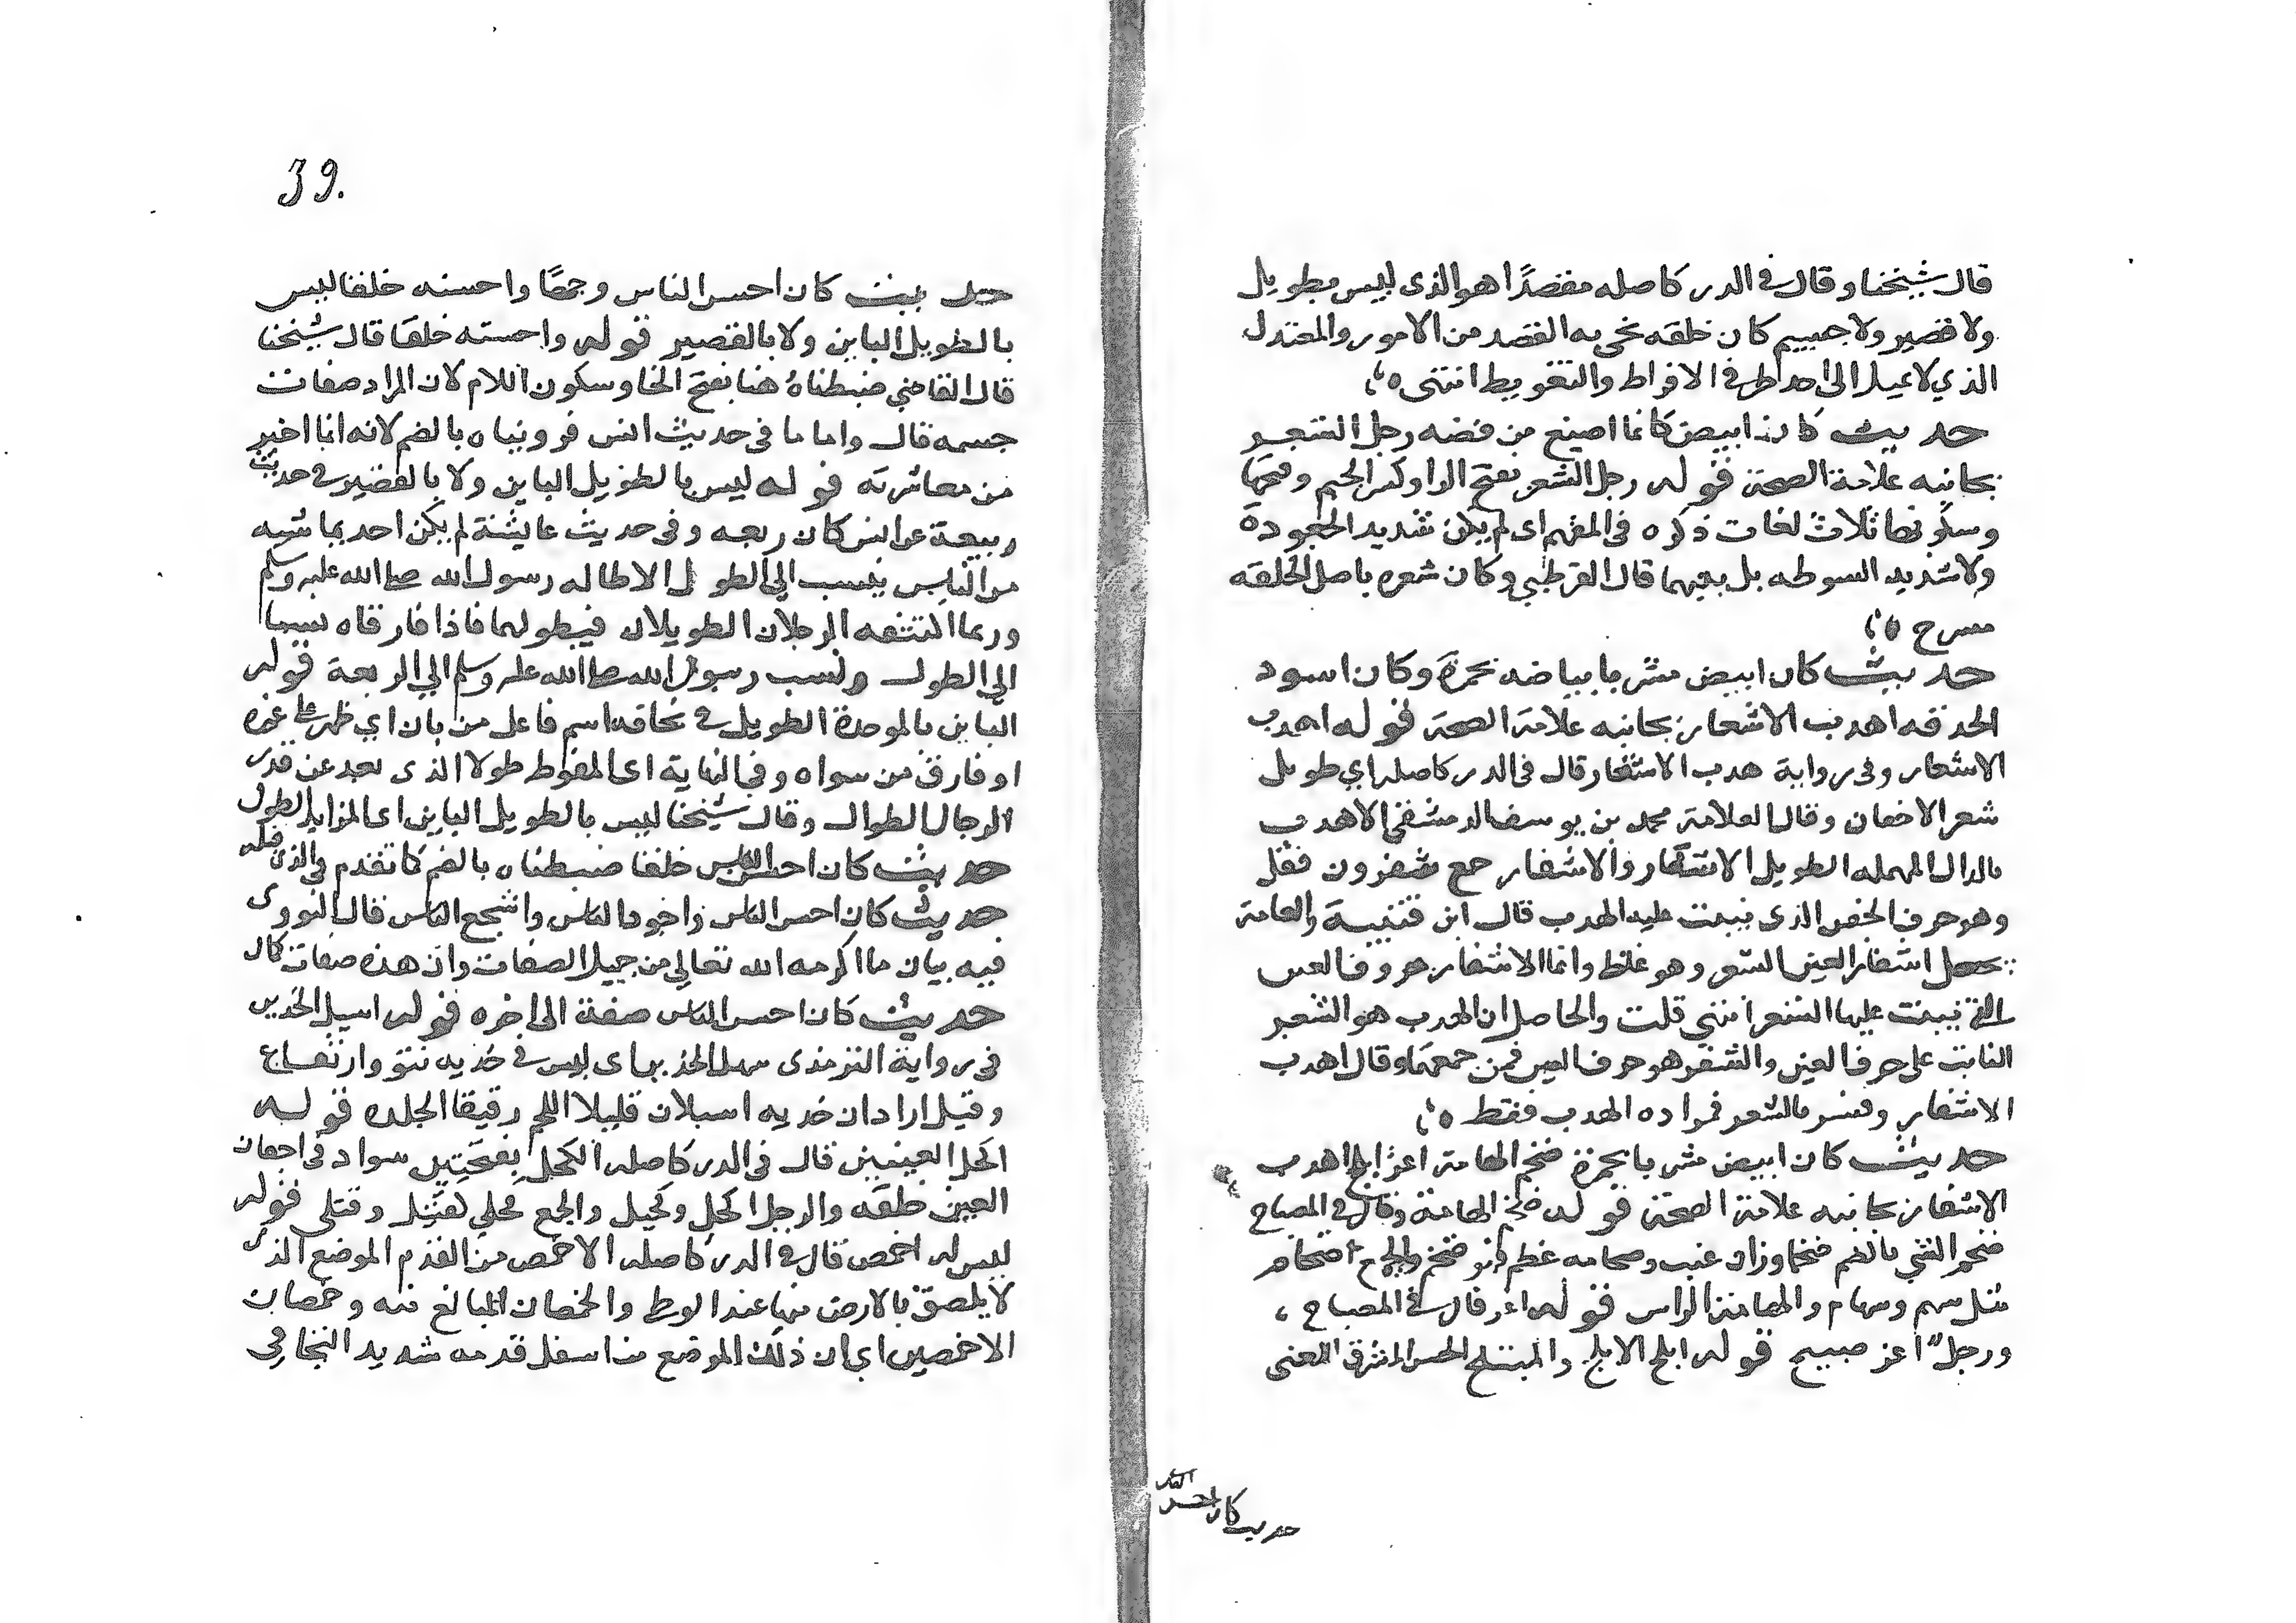 قال شيخنا وقال في الدر كاصله مقصدًا هو الذي ليس بطويل
ولا قصير ولا جسيم كان خلقه نحي به القصد من الامور والمعتدل
الذي لا يميل الى احد طرفي الافراط والتفريط انتهى
حديث كان ابيض كانما اصيغ من فضه رجل الشعر
بجانبه علامة الصحة قوله رجل الشعر بفتح الرا وكسر الجيم وفتحها
وسكونها ثلاث لغات ذكره في المفهم اي لم يكن شديد الجعودة
ولا شديد السبوطه بل بينهما قال القرطبي وكان شعره باصل الخلقه
مسرح
حديث كان ابيض مشربا بياضه بحمرة وكان اسود
الحدقه اهدب الاشفار بجانبه علامة الصحة قوله اهدب
الاشفار وفي رواية هدب الاشفار قال في الدر كاصله اي طويل
شعر الاجفان وقال العلامة محمد بن يوسف الدمشقي الاهدب
بالدال المهمله الطويل الاشفار والاشفار جمع شفر
وهو حرف الجفن الذي ينبت عليه الهدب قال ابن قتيبة والعامة
تجعل اشفار العين الشعر وهو غلط وانما الاشفار حروف العين
التي ينبت عليها الشعر انتهى قلت والحاصل ان الهدب هو الشعر
النابت على حرف العين والشفر هو حرف العين فمن جمعهما وقال اهدب
الاشفار وفسر بالشعر فمراده الهدب فقط
حديث كان ابيض مشربا بحمرة ضخم الهامة اغر ابلج اهدب
الاشفار بجانبه علامة الصحة قوله ضخم الهامة وقال في المصباح
ضخم الشي بالضم ضخما وزان عنب وضخامه عظم فهو ضخم والجمع ضخام
مثل سهم وسهام والهامة الراس قوله اغر قال في المصباح
ورجل اغر صبيح قوله ابلج الابلج والمبتلج الحسن المشرق المعنى
حديث كان احسن الناس
39.
حديث كان احسن الناس وجهًا واحسنه خلقا ليس
بالطويل الباين ولا بالقصير قوله واحسنه خلقا قال شيخنا
قال القاضي ضبطناه هنا بفتح الخا وسكون اللام لان المراد صفات
جسمه قال واما ما في حديث انس فرويناه بالضم لانه انما اخبر
من معاشرته قوله ليس بالطويل الباين ولا بالقصير في حديث
ربيعة عن انس كان ربعه وفي حديث عايشة لم يكن احد يماشيه
من الناس ينسب الي الطول الا طاله رسول الله صلى الله عليه وسلم
وربما اكتنفه الرجلان الطويلان فيطولهما فاذا فارقاه نسبا
الي الطول ونسب رسول الله صلى الله عليه وسلم الي الربعة قوله
الباين بالموحدة الطويل في نحافه اسم فاعل من بان اي ظهر على غيره
او فارق من سواه وفي النهاية اي المفرط طولا الذي بعد عن قدر
الرجال الطوال وقال شيخنا ليس بالطويل الباين اي المزايد الطول
حديث كان احسن الناس خلقا ضبطناه بالضم كما تقدم في الذي قبله
حديث كان احسن الناس واجود الناس واشجع الناس قال النووي
فيه بيان ما اكرمه الله تعالي من جميل الصفات وان هذه صفات كمال
حديث كان احسن الناس صفة الى اخره قوله اسيل الخدين
في رواية الترمذي سهل الخدين اي ليس في خديه نتو وارتفاع
وقيل اراد ان خديه اسيلان قليلا اللحم رقيقا الجلد قوله
اكحل العينين قال في الدر كاصله الكحل بفتحتين سواد في اجفان
العين خلقه والرجل اكحل وكحيل والجمع كحلي كقتيل وقتلى قوله
ليس له اخمص قال في الدر كاصله الاخمص من القدم الموضع الذي
لا يلصق بالارض منها عند الوطء والخمصان المبالغ منه وخمصان
الاخمصين اي ان ذلك الموضع من اسفل قدمه شديد التجافي